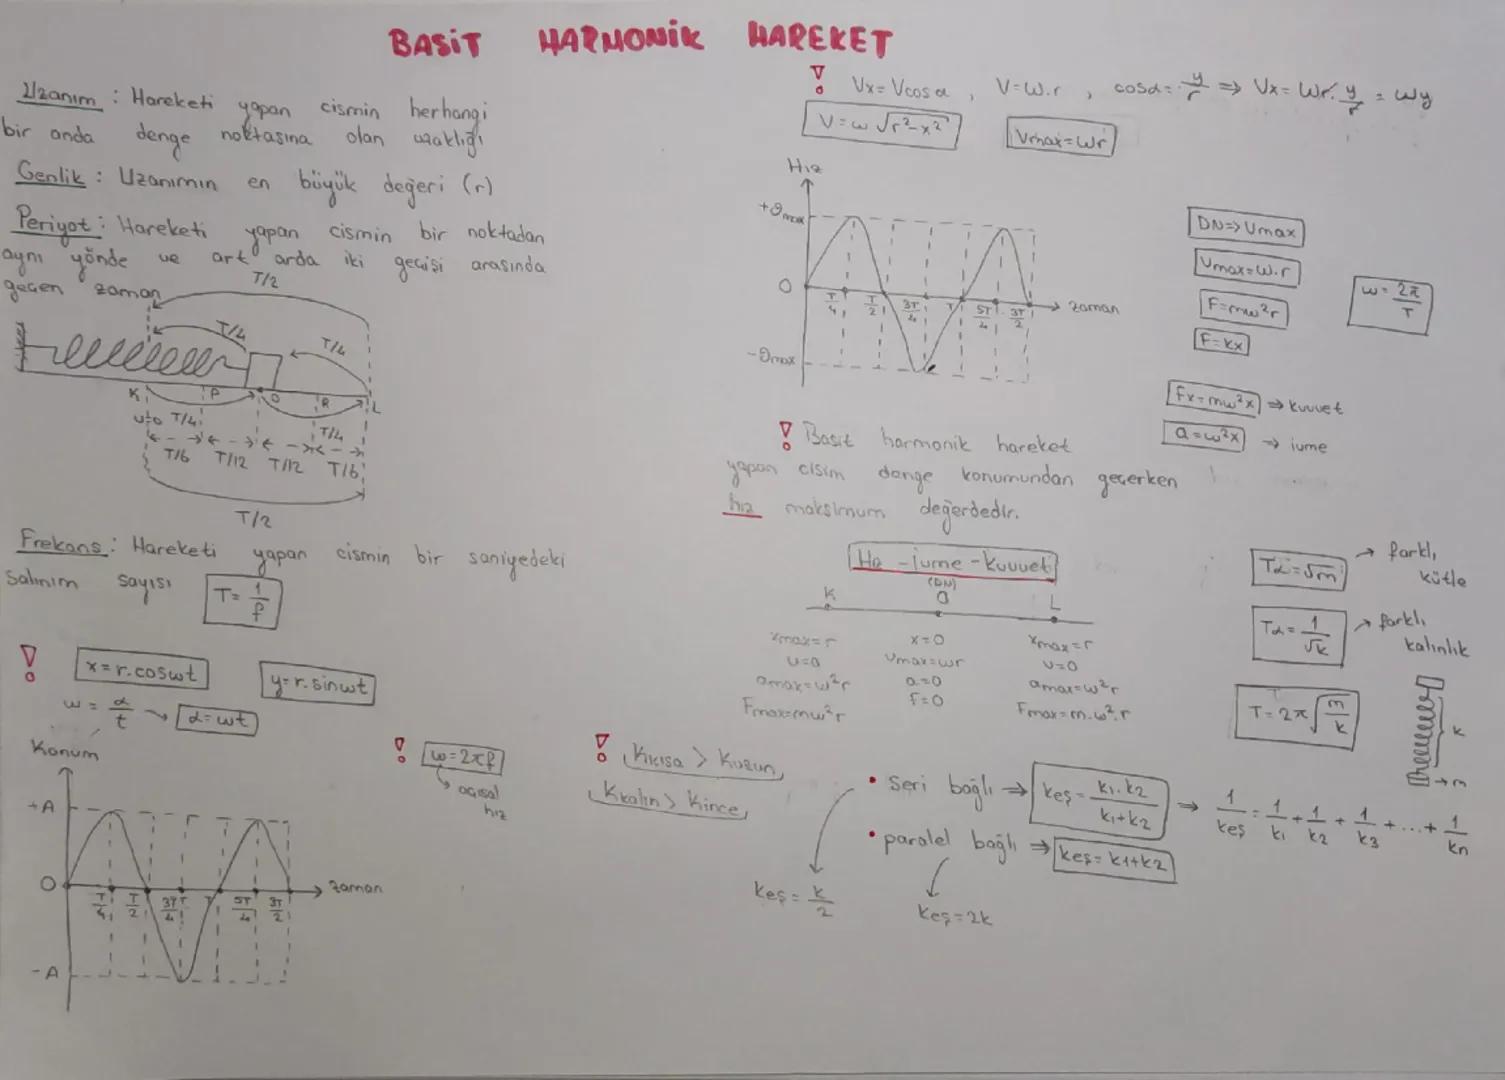 BASİT HARMONİK HAREKET
Uzanım : Hareketi yapan cismin herhangi
bir anda denge noktasına olan uzaklığı
Genlik : Uzanımın en büyük değeri (r)
Periyot : Hareketi yapan cismin bir noktadan
aynı yönde ve art arda iki geçişi arasında
geçen zaman
T/2
T/4
T/4
K P O R L
υ=0 T/4
T/4
T/6 T/12 T/12 T/6
T/2
Frekans : Hareketi yapan cismin bir saniyedeki
salınım sayısı T = 1/f
! x = r.coswt y = r.sinwt
w = α/t → α = wt
Konum
+A
O
-A
T/4 T/2 3T/4 T 5T/4 3T/2
zaman
! w = 2πf
açısal
hız
! Vx = Vcosα , V = w.r , cosα = y/r ⇒ Vx = wr. y/r = wy
V = w √r²-x² Vmax = wr
Hız
+ϑmax
O
-ϑmax
T/4 T/2 3T/4 T 5T/4 3T/2
zaman
DN ⇒ Vmax
Vmax = w.r
F = mw²r
F = kx
w = 2π/T
Fx = mw²x ⇒ kuvvet
a = w²x ⇒ ivme
! Basit harmonik hareket
yapan cisim denge konumundan geçerken
hız maksimum değerdedir.
Hız - ivme - kuvvet
(DN)
K O L
xmax = r x = 0 xmax = r
υ = 0 υmax = wr υ = 0
amax = w²r a = 0 amax = w²r
Fmax = mw²r F = 0 Fmax = m.w².r
Tα = √m → farklı
kütle
Tα = 1/√k → farklı
kalınlık
T = 2π √m/k
k
→ m
! Kkısa > Kuzun
Kkalın > Kince
• seri bağlı ⇒ keş = k1.k2/k1+k2 ⇒ 1/keş = 1/k1 + 1/k2 + 1/k3 + ... + 1/kn
• paralel bağlı ⇒ keş = k1+k2
keş = k/2
keş = 2k